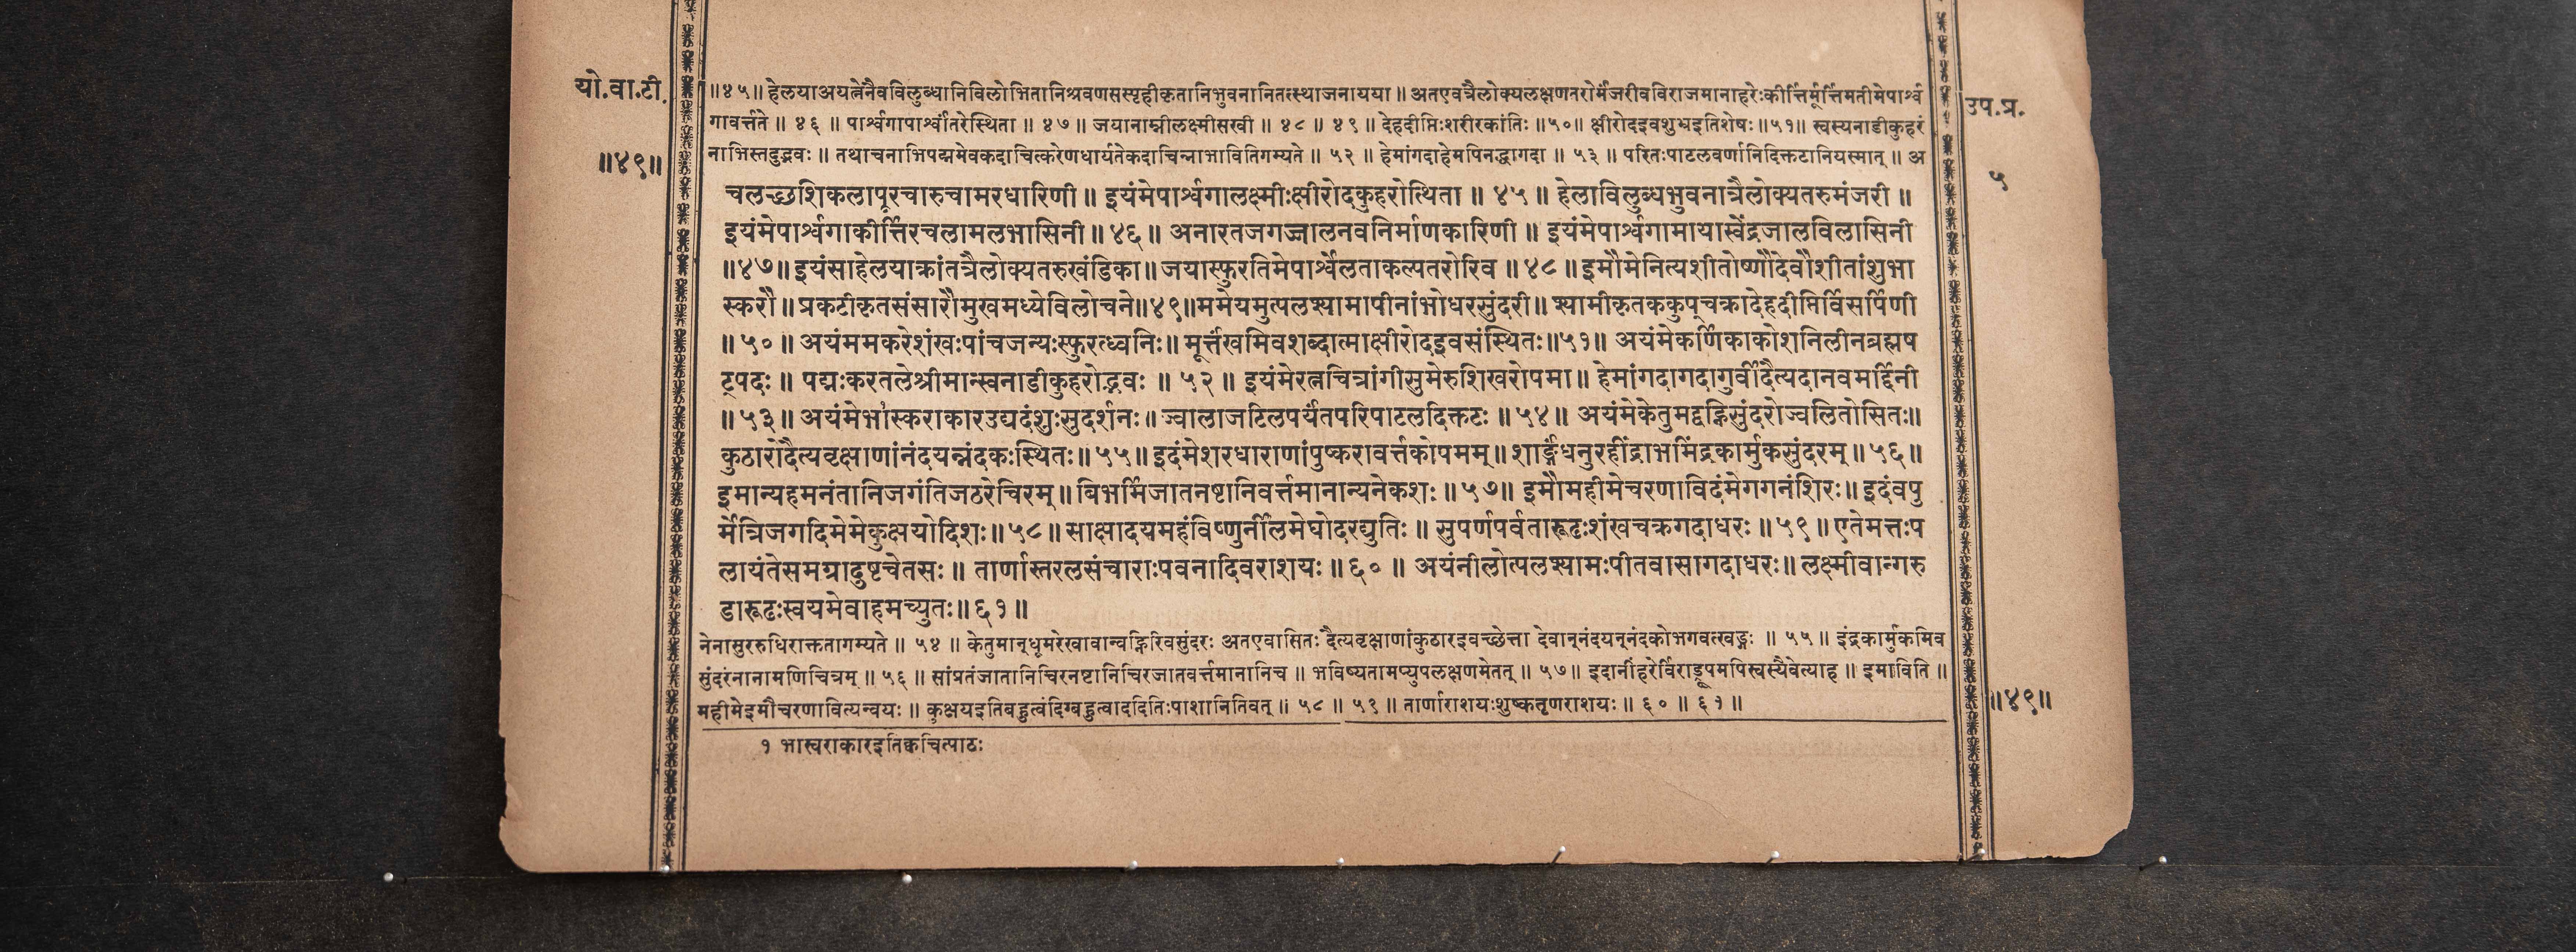 यो.वा.टी.
॥४९॥
॥४५॥ हेलयाअयत्नेनैवविलुब्धानिविलोभितानिश्रवणसस्पृहीकृतानिभुवनानितत्स्थाजनायया ॥ अतएवत्रैलोक्यलक्षणतरोर्मंजरीवविराजमानाहरेःकीर्त्तिर्मूर्त्तिमतीमेपार्श्व
गावर्त्तते ॥ ४६ ॥ पार्श्वगापार्श्वांतरेस्थिता ॥ ४७ ॥ जयानाम्नीलक्ष्मीसखी ॥ ४८ ॥ ४९ ॥ देहदीप्तिःशरीरकांतिः ॥५०॥ क्षीरोदइवशुभ्रइतिशेषः ॥५१॥ स्वस्यनाडीकुहरं
नाभिस्तदुद्भवः ॥ तथाचनाभिपद्ममेवकदाचित्करेणधार्यतेकदाचिन्नाभावितिगम्यते ॥ ५२ ॥ हेमांगदाहेमपिनद्धागदा ॥ ५३ ॥ परितःपाटलवर्णानिदिक्तटानियस्मात् ॥ अ
चलच्छशिकलापूरचारुचामरधारिणी ॥ इयंमेपार्श्वगालक्ष्मीःक्षीरोदकुहरोत्थिता ॥ ४५ ॥ हेलाविलुब्धभुवनात्रैलोक्यतरुमंजरी ॥
इयंमेपार्श्वगाकीर्त्तिरचलामलभासिनी ॥ ४६ ॥ अनारतजगज्जालनवनिर्माणकारिणी ॥ इयंमेपार्श्वगामायास्वेंद्रजालविलासिनी
॥४७॥ इयंसाहेलयाक्रांतत्रैलोक्यतरुखंडिका ॥ जयास्फुरतिमेपार्श्वेलताकल्पतरोरिव ॥ ४८ ॥ इमौमेनित्यशीतोष्णौदेवौशीतांशुभा
स्करौ ॥ प्रकटीकृतसंसारौमुखमध्येविलोचने॥४९॥ममेयमुत्पलश्यामापीनांभोधरसुंदरी॥ श्यामीकृतककुप्चक्रादेहदीप्तिर्विसर्पिणी
॥ ५० ॥ अयंममकरेशंखःपांचजन्यःस्फुरत्ध्वनिः॥ मूर्त्तंखमिवशब्दात्माक्षीरोदइवसंस्थितः॥५१॥ अयंमेकर्णिकाकोशनिलीनब्रह्मष
ट्पदः ॥ पद्मःकरतलेश्रीमान्स्वनाडीकुहरोद्भवः ॥ ५२ ॥ इयंमेरत्नचित्रांगीसुमेरुशिखरोपमा॥ हेमांगदागदागुर्वीदैत्यदानवमर्द्दिनी
॥५३॥ अयंमेभास्कराकारउद्यदंशुःसुदर्शनः॥ ज्वालाजटिलपर्यंतपरिपाटलदिक्तटः ॥ ५४ ॥ अयंमेकेतुमद्वह्निसुंदरोज्वलितोसितः॥
कुठारोदैत्यवृक्षाणांनंदयन्नंदकःस्थितः॥५५॥ इदंमेशरधाराणांपुष्करावर्त्तकोपमम्॥ शार्ङ्गंधनुरहींद्राभमिंद्रकार्मुकसुंदरम् ॥ ५६ ॥
इमान्यहमनंतानिजगंतिजठरेचिरम्॥ बिभर्मिजातनष्टानिवर्त्तमानान्यनेकशः ॥५७॥ इमौमहीमेचरणाविदंमेगगनंशिरः॥ इदंवपु
र्मेत्रिजगदिमेमेकुक्षयोदिशः॥५८॥ साक्षादयमहंविष्णुर्नीलमेघोदरद्युतिः ॥ सुपर्णपर्वतारूढःशंखचक्रगदाधरः ॥५९॥ एतेमत्तःप
लायंतेसमग्रादुष्टचेतसः ॥ तार्णास्तरलसंचाराःपवनादिवराशयः ॥६०॥ अयंनीलोत्पलश्यामःपीतवासागदाधरः॥ लक्ष्मीवान्गरु
डारूढःस्वयमेवाहमच्युतः॥६१॥
नेनासुररुधिराक्ततागम्यते ॥ ५४ ॥ केतुमान्धूमरेखावान्वह्निरिवसुंदरः अतएवासितः दैत्यवृक्षाणांकुठारइवच्छेत्ता देवान्नंदयन्नंदकोभगवत्खड्गः ॥ ५५ ॥ इंद्रकार्मुकमिव
सुंदरंनानामणिचित्रम् ॥ ५६ ॥ सांप्रतंजातानिचिरनष्टानिचिरजातवर्त्तमानानिच ॥ भविष्यतामप्युपलक्षणमेतत् ॥ ५७ ॥ इदानींहरेर्विराड्रूपमपिस्वस्यैवेत्याह ॥ इमाविति ॥
महीमेइमौचरणावित्यन्वयः ॥ कुक्षयइतिबहुत्वंदिग्बहुत्वाददितिःपाशानितिवत् ॥ ५८ ॥ ५९ ॥ तार्णाराशयःशुष्कतृणराशयः ॥ ६० ॥ ६१ ॥
१ भास्वराकारइतिक्वचित्पाठः
उप.प्र.
५
॥४९॥